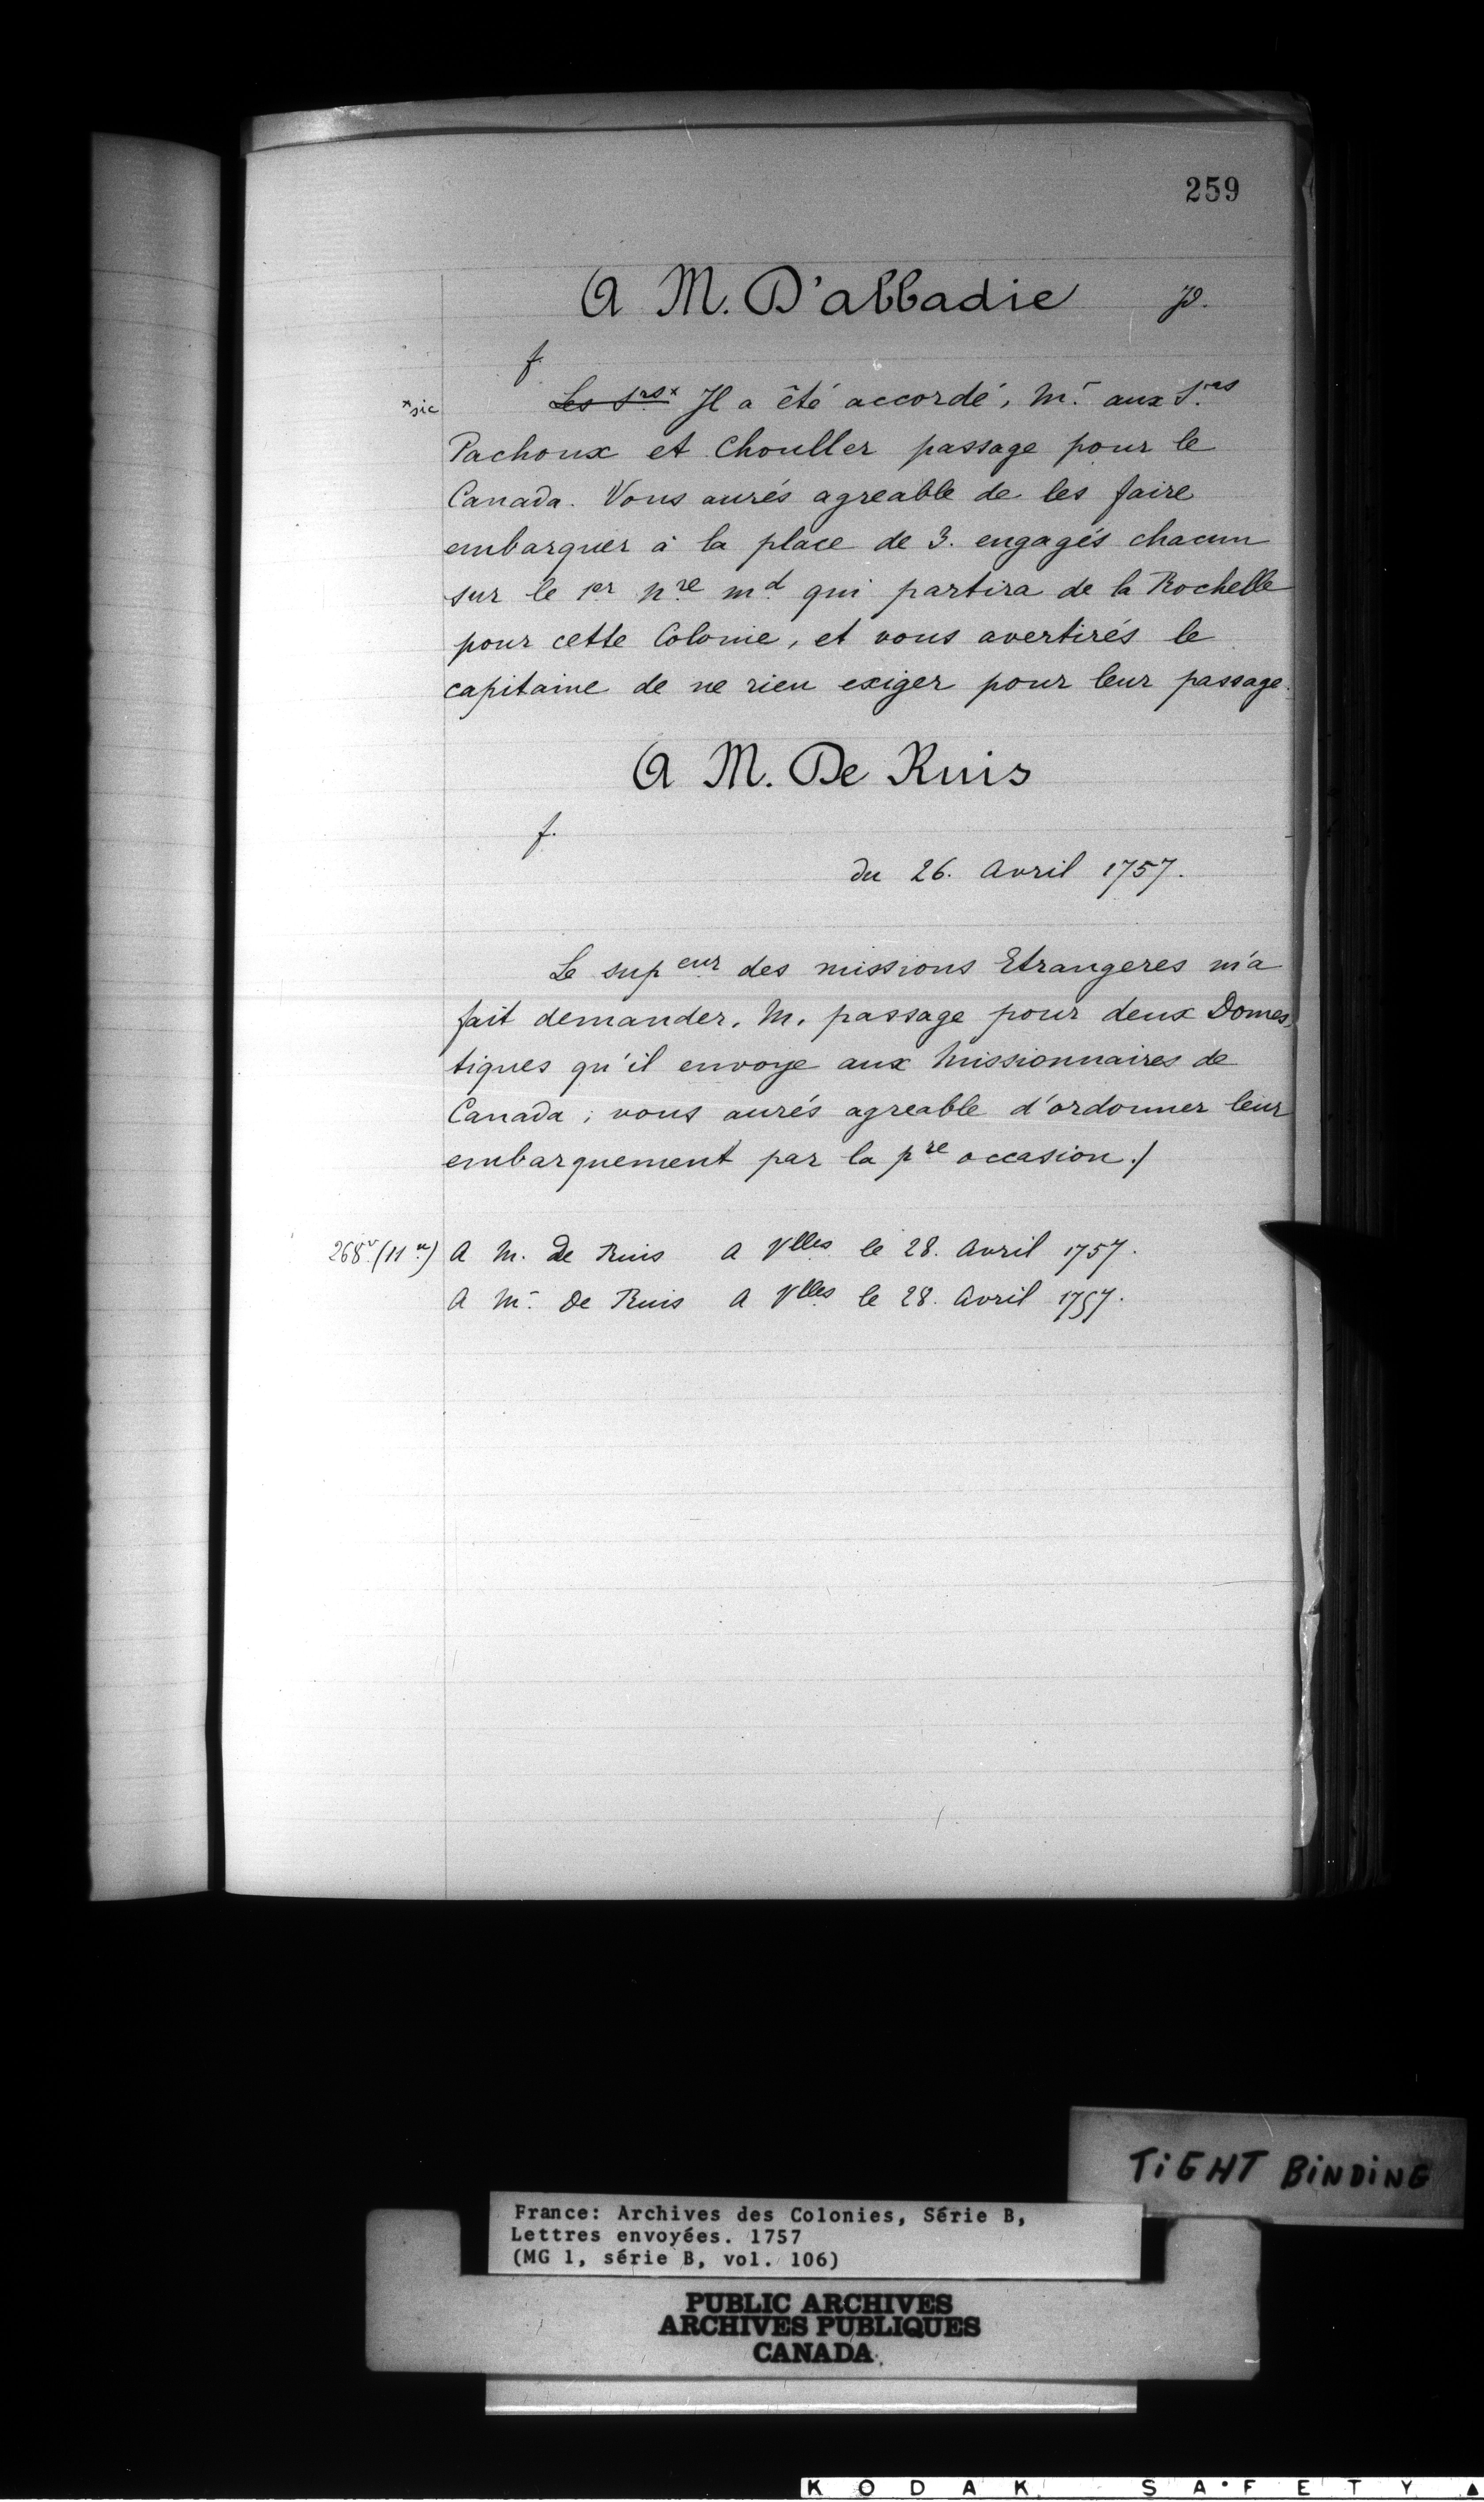 259
A M. D'abbadie
f.
*sic
Les srs x Il a êté accordé, Mr. aux Srs
Pachoux et Chouller passage pour le
Canada. Vous aurés agreable de les faire
embarquer à la place de 3. engagés chacun
sur le 1er nre md qui partira de la Rochelle
pour cette Colonie, et vous avertirés le
capitaine de ne rien exiger pour leur passage.
A M. De Ruis
f.
du 26. Avril 1757.
Le supeur des missions Etrangeres m'a
fait demander, M. passage pour deux Domes,
tiques qu'il envoye aux Missionnaires de
Canada ; vous aurés agreable d'ordonner leur
embarquement par la pre occasion ./
268v (11 a) A M. de Ruis A Vlles le 28. Avril 1757.
A M. De Ruis A Vlles le 28. Avril 1757.
TiGHT BiNDiNG
France: Archives des Colonies, Série B,
Lettres envoyées. 1757
(MG 1, série B, vol. 106)
PUBLIC ARCHIVES
ARCHIVES PUBLIQUES
CANADA
KODAK SAFETY